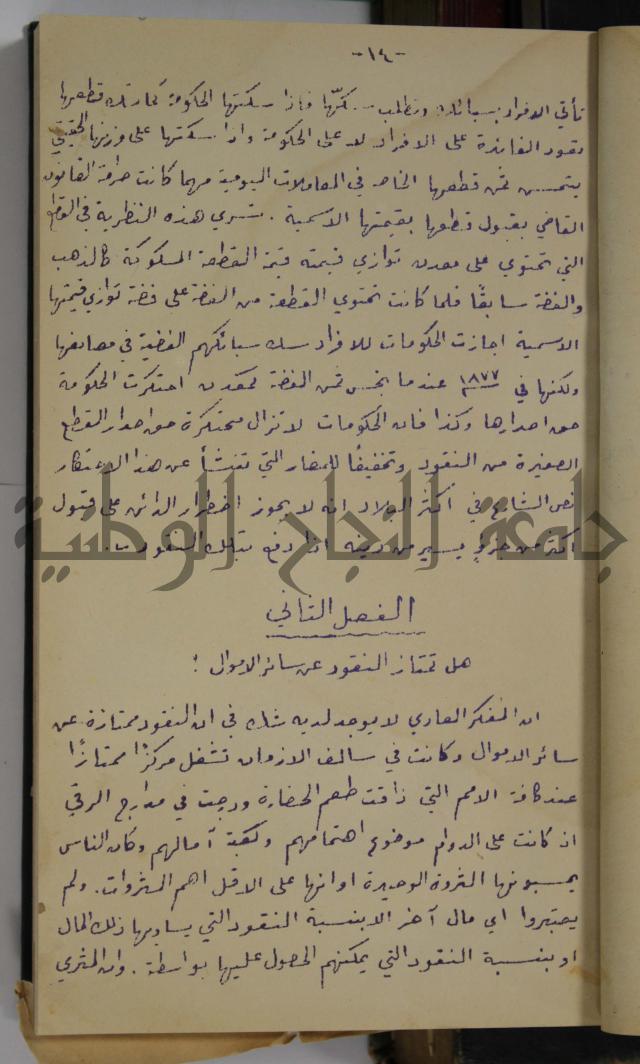 -١٤-
تأتي الافراد بسبائك وتطلب سكّها فاذا سكتها الحكومة كارتك قطعها
تعود الفائدة على الافراد لا على الحكومة واذا سكتها على وزنها الحقيقي
يتحسن ثمن قطعها الخاصة في المعاملات اليومية مهما كانت صرامة القانون
القاضي بقبول قطعها بقيمتها الاسمية . تسري هذه النظرية في القطع
التي تحتوي على معدن توازي قيمته قيمة القطعة المسكوكة كالذهب
والفضة سابقًا فلما كانت تحتوي القطعة من الفضة على فضة توازي قيمتها
الاسمية اجازت الحكومات للافراد سك سبائكهم الفضية في مصانعها
ولكنها في ١٨٧٧ عندما بخس ثمن الفضة كمعدن احتكرت الحكومة
حق اصدارها وكذا فان الحكومات لا تزال محتكرة حق اصدار القطع
الصغيرة من النقود وتخفيفًا للمضار التي تنشأ عن هذا الاحتكار
نص الشارع في اكثر البلاد انه لا يجوز اضطرار الدائن على قبول
اكثر من جزء يسير من دينه اذا دفع بتلك النقود .
جامعة النجاح الوطنية
الفصل الثاني
هل تمتاز النقود عن سائر الاموال ؟
ان المفكر العادي لا يوجد لديه شك في ان النقود ممتازة عن
سائر الاموال وكانت في سالف الازمان تشغل مركزًا ممتازًا
عند كافة الامم التي ذاقت طعم الحضارة ودرجت في مدارج الرقي
اذ كانت على الدوام موضوع اهتمامهم وكعبة آمالهم وكان الناس
يحسبونها الثروة الوحيدة او انها على الاقل اهم الثروات . ولم
يعتبروا اي مال آخر الا بنسبة النقود التي يساويها ذلك المال
او بنسبة النقود التي يمكنهم الحصول عليها بواسطة . وان المثري